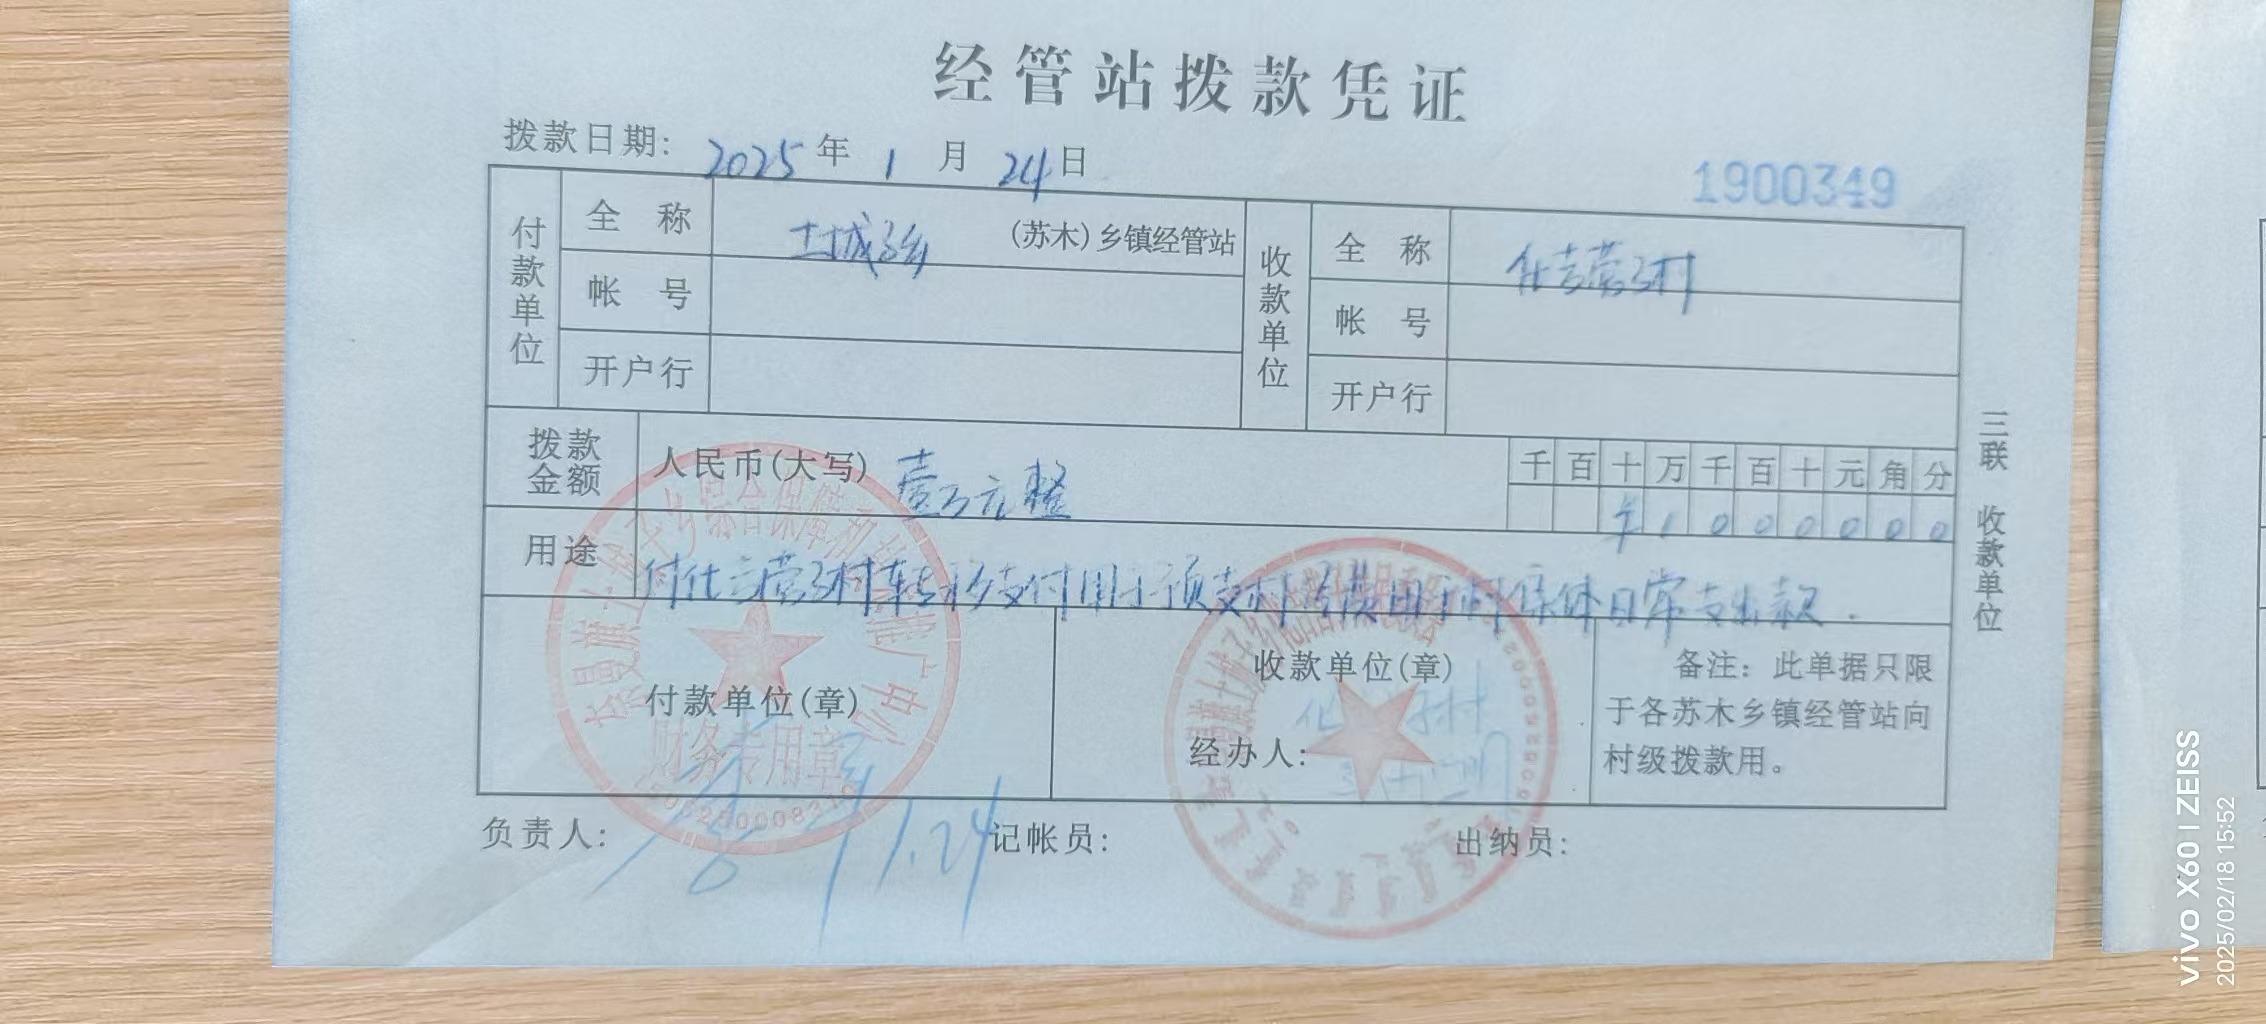 经管站拨款凭证
拨款日期: 2025年1月24日
1900349
付款单位
全称 土城子乡 (苏木)乡镇经管站
帐号
开户行
收款单位
全称 化吉营子村
帐号
开户行
拨款金额
人民币(大写) 壹万元整
千百十万千百十元角分
¥1000000
用途
付化吉营子村转移支付用于预支村 费用于村集体日常支出款.
付款单位(章)
财务专用章
收款单位(章)
经办人:
备注:此单据只限
于各苏木乡镇经管站向
村级拨款用。
负责人:
1.24
记帐员:
出纳员:
三联 收款单位
vivo X60 | ZEISS
2025/02/18 15:52